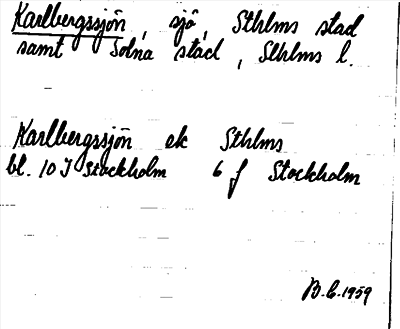 Karlbergssjön, sjö, Sthlms stad
samt Solna stad, Sthlms l.
Karlbergssjön ek Sthlms
bl. 10 I Stockholm 6 f Stockholm
B.C. 1959